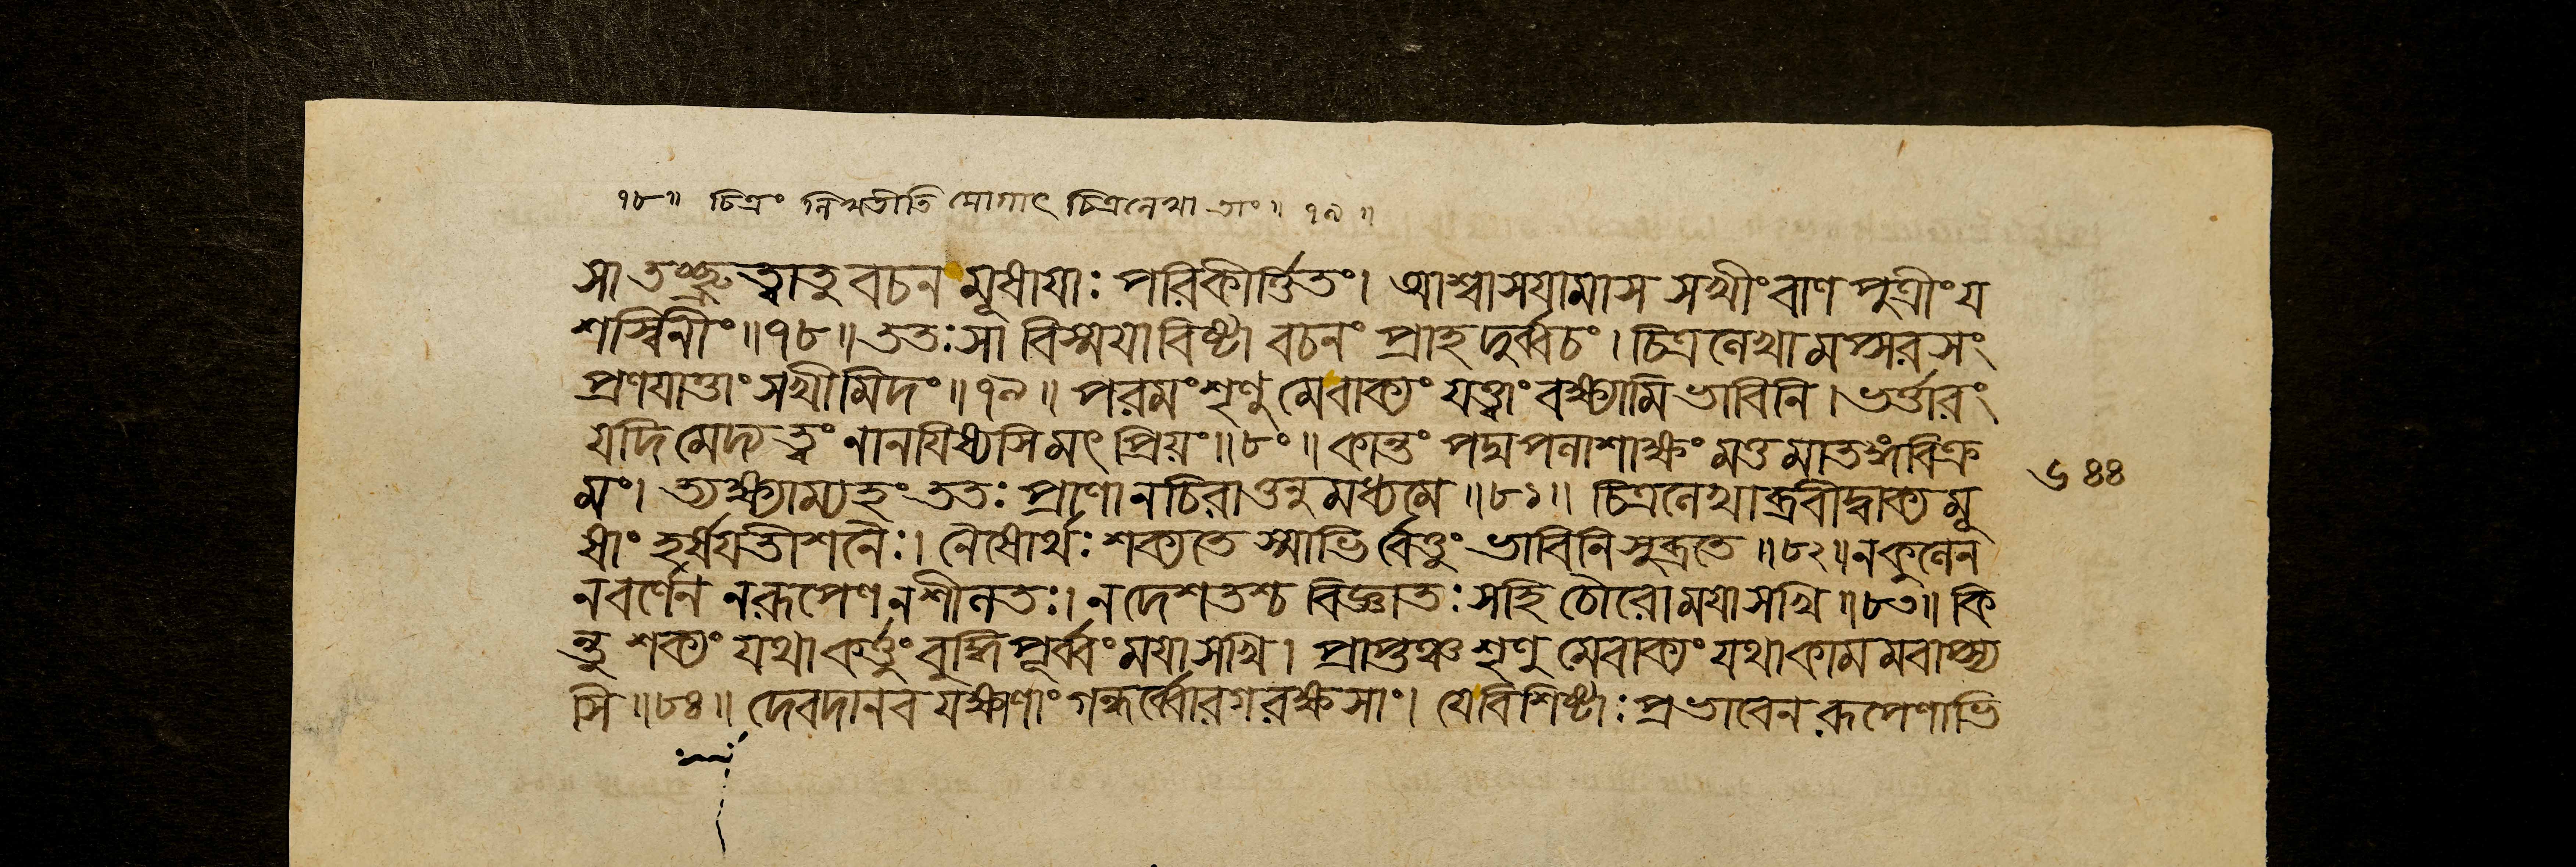 ৭৮॥ চিত্রং লিখতীতি যোগাৎ চিত্রলেখা তাং॥ ৭৯॥
সা তচ্ছ্রুত্বাতু বচন মূষায়াঃ পরিকীর্ত্তিতং। আশ্বাসয়ামাস সখীং বাণ পুত্রীং য
শস্বিনীং॥৭৮॥ ততঃ সা বিস্ময়াবিষ্টা বচনং প্রাহ দুর্ব্বচং। চিত্রলেখা মপ্সরসং
প্রণয়াত্তাং সখীমিদং॥৭৯॥ পরমং শৃণু মে বাক্যং যত্ত্বাং বক্ষ্যামি ভাবিনি। ভর্ত্তারং
যদি মেদ্য ত্বং নানয়িষ্যসি মৎ প্রিয়ং॥৮০॥ কান্তং পদ্ম পলাশাক্ষং মত্ত মাতঙ্গ বিক্র
মং। ত্যক্ষ্যাম্যহং ততঃ প্রাণান চিরাত্তনু মধ্যমে॥৮১॥ চিত্রলেখাব্রবীদ্বাক্য মূ
ষাং হর্ষয়তীশনৈঃ। নৈষোর্থঃ শক্যতে স্মাভি র্বেত্তুং ভাবিনি সুব্রতে॥৮২॥ ন কুলেন
ন বর্ণেন ন রূপেণ ন শীলতঃ। ন দেশতশ্চ বিজ্ঞাতঃ সহি চৌরো ময়া সখি॥৮৩॥ কি
ন্তু শক্যং যথা কর্ত্তুং বুদ্ধি পূর্ব্বং ময়া সখি। প্রাপ্তুঞ্চ শৃণু মে বাক্যং যথা কাম মবাপ্স্য
সি॥৮৪॥ দেবদানব যক্ষাণাং গন্ধর্ব্বোরগ রক্ষসাং। যে বিশিষ্টাঃ প্রভাবেন রূপেণাভি
৬৪৪